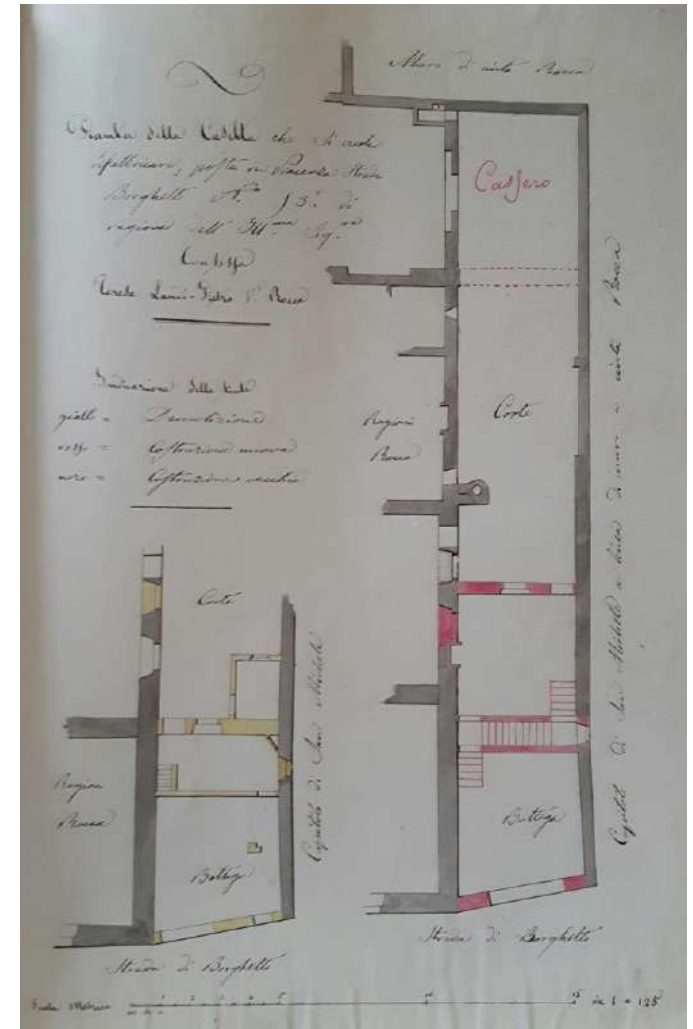 Muro di cinta Rocca
Pianta della Casella che si vuole
rifabbricare, posta in Piacenza Strada
Borghetto N.º 53.º di
ragione dell' Ill.ma Sig.ra
Contessa
Lanci
Cassero
Indicazione delle tinte
giallo = Demolizione
rosso = Costruzione nuova
nero = Costruzione vecchia
Ragioni
Rocca
Corte
Capitolo di San Michele a linea di muro di cinta Rocca
Bottega
Strada di Borghetto
Corte
Capitolo di San Michele
Ragioni
Rocca
Bottega
Strada di Borghetto
Scala Metrica
di 1 = 125